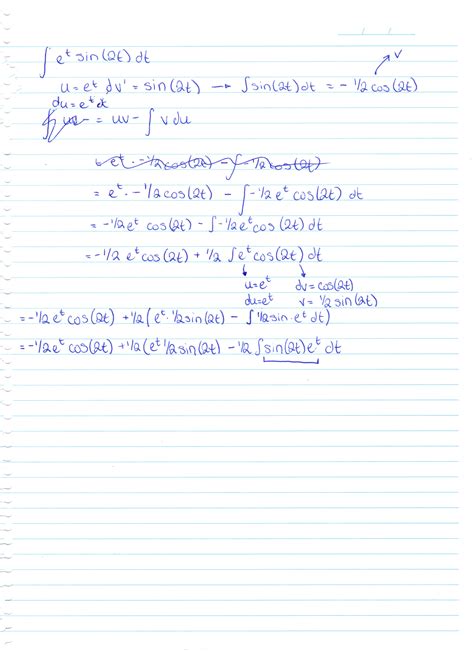 ∫ e^t sin(2t) dt
v
u = e^t dv' = sin(2t) → ∫sin(2t)dt = - 1/2 cos(2t)
du = e^t dt
= uv - ∫ v du
e^t · -1/2cos(2t) - ∫ -1/2cos(2t)
= e^t · -1/2cos(2t) - ∫ -1/2 e^t cos(2t) dt
= -1/2e^t cos(2t) - ∫ -1/2e^t cos(2t) dt
= -1/2 e^t cos(2t) + 1/2 ∫e^t cos(2t) dt
u = e^t dv = cos(2t)
du = e^t v = 1/2 sin(2t)
= -1/2 e^t cos(2t) + 1/2 ( e^t · 1/2sin(2t) - ∫ 1/2sin · e^t dt)
= -1/2e^t cos(2t) + 1/2(e^t 1/2sin(2t) - 1/2 ∫sin(2t)e^t dt